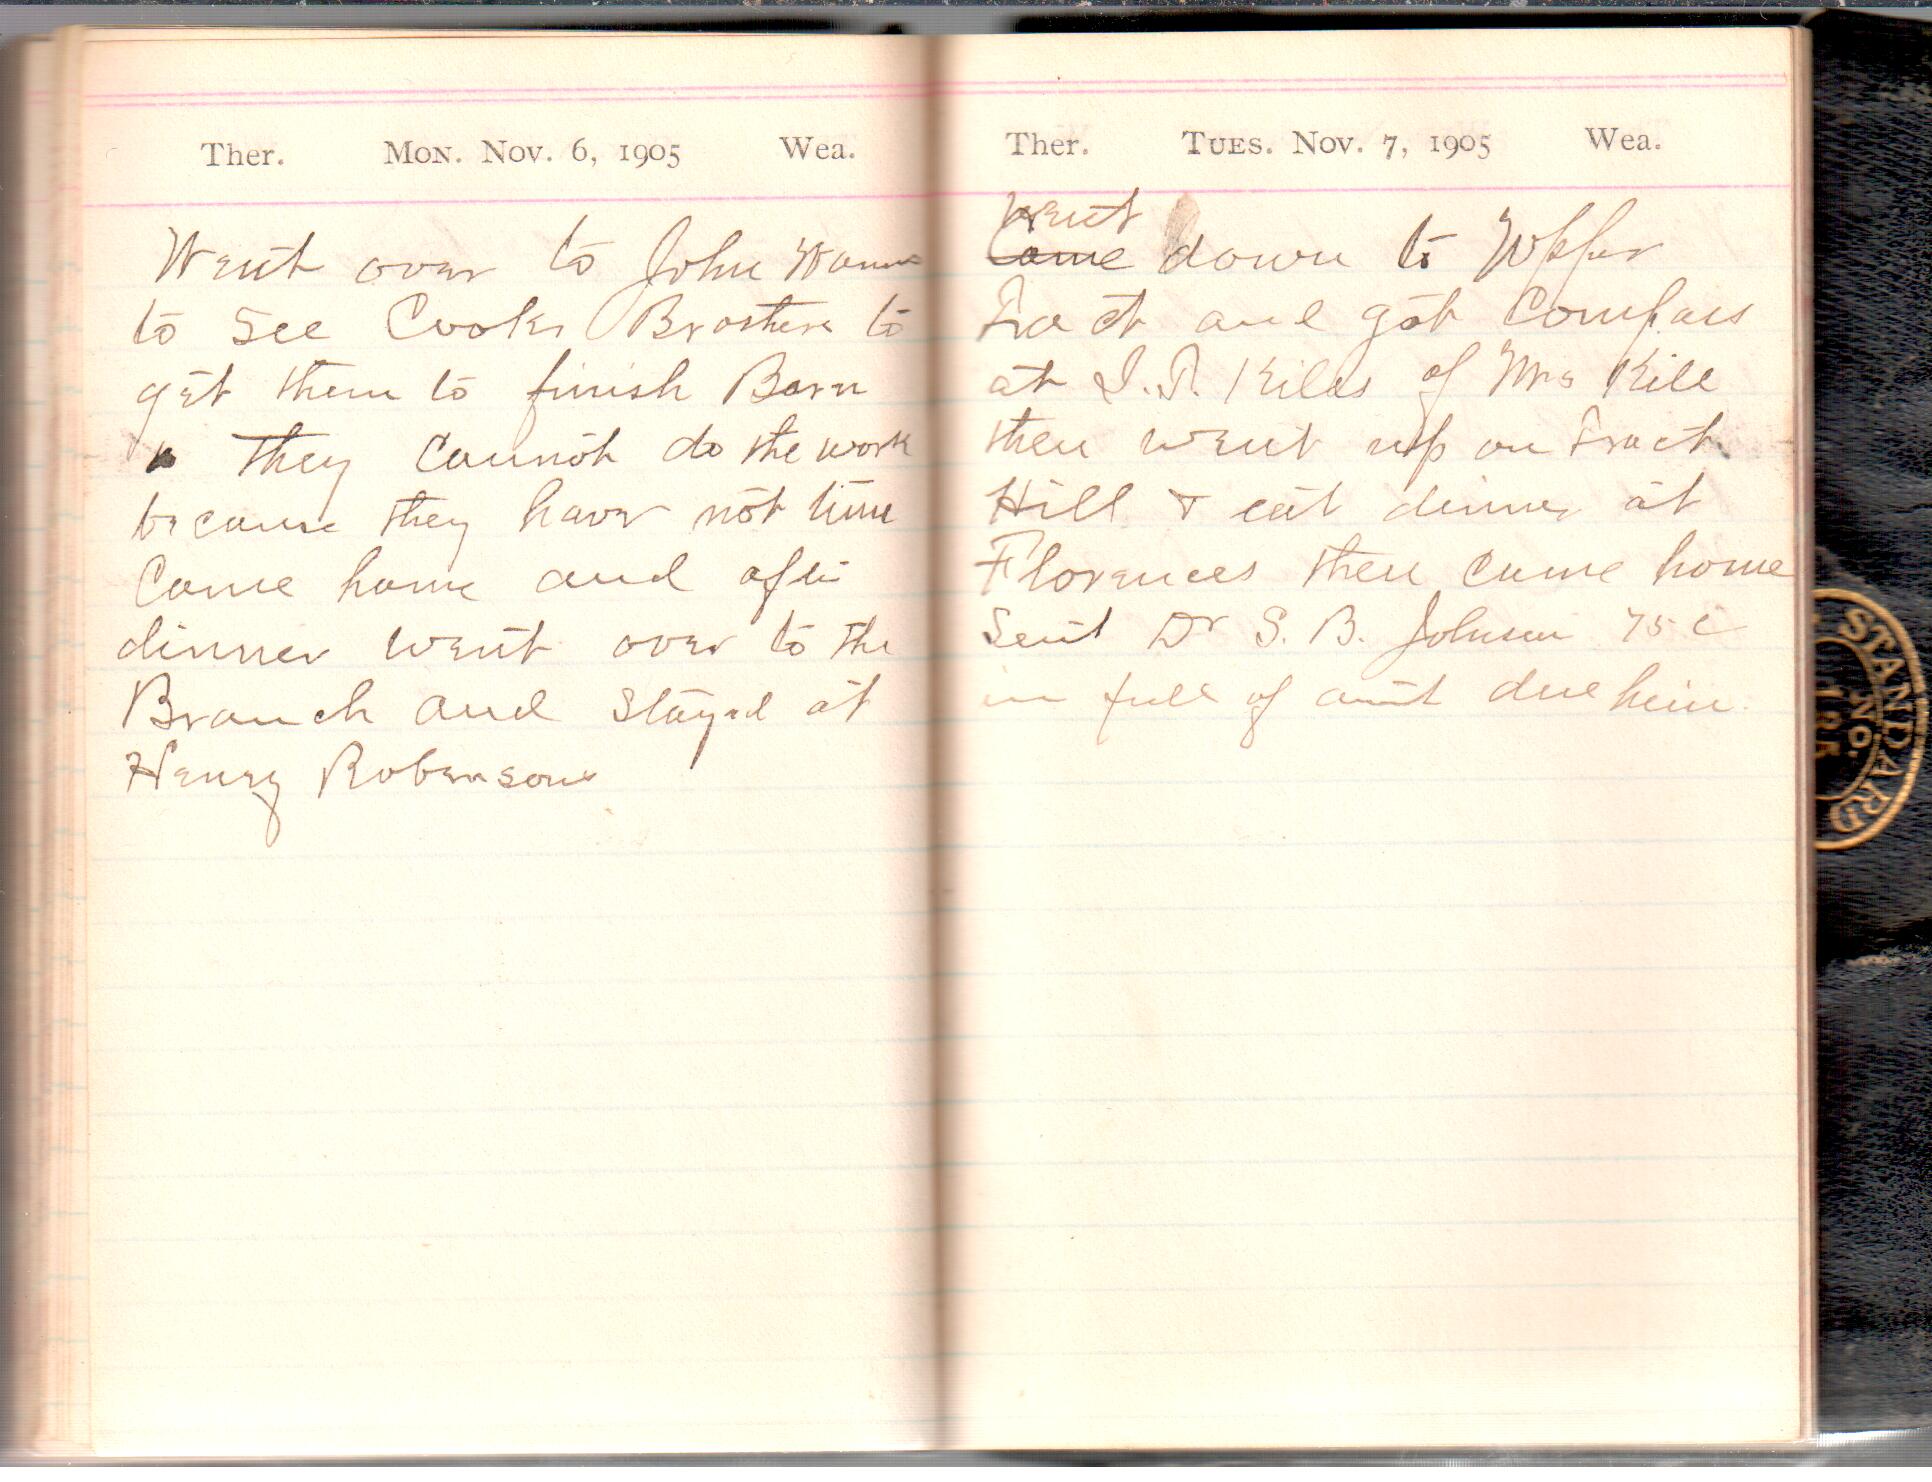 Ther. Mon. Nov. 6, 1905 Wea.
Went over to John
to see Cooks Brothers to
get them to finish Barn
They cannot do the work
because they have not time
Came home and after
dinner went over to the
Branch and stayed at
Henry Robensons
Ther. Tues. Nov. 7, 1905 Wea.
Went
Came down to Upper
Tract and got Compass
at I. T. Kiles of Mrs Kile
then went up on Tract
Hill & eat dinner at
Florences then came home
Sent Dr S. B. Johnson 75 c
in full of amt due him.
STANDARD
NO.